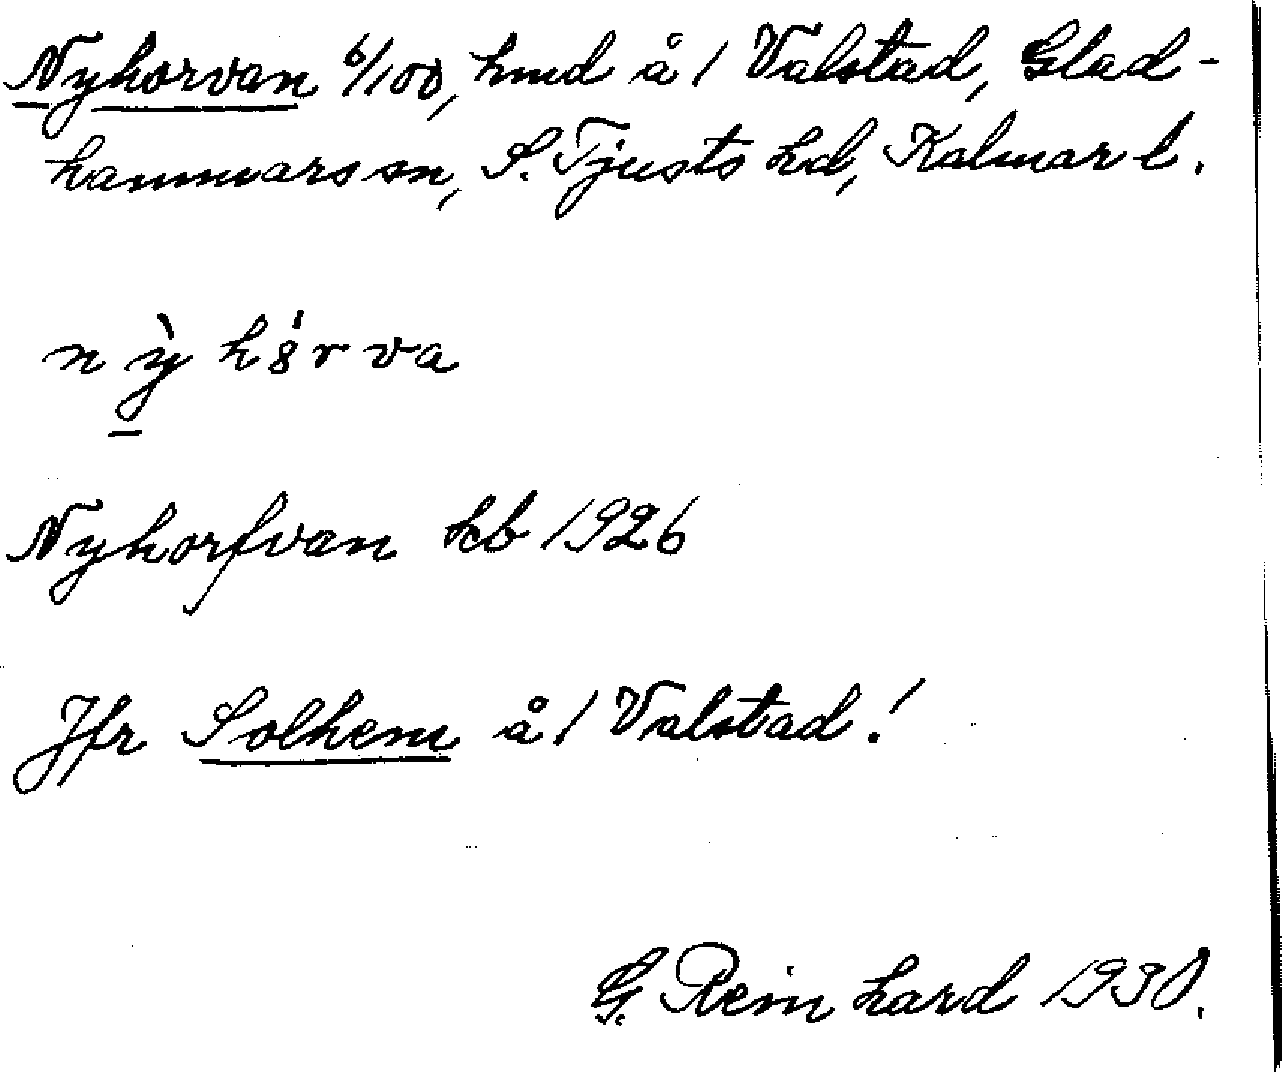 Nyhorvan 6/100, hmd å 1 Valstad, Glad-
hammars sn, S. Tjusts hd, Kalmar l.
nỳ hȯ́rva
Nyhorfvan kb 1926
Jfr Solhem å 1 Valstad!
G. Reinhard 1930.